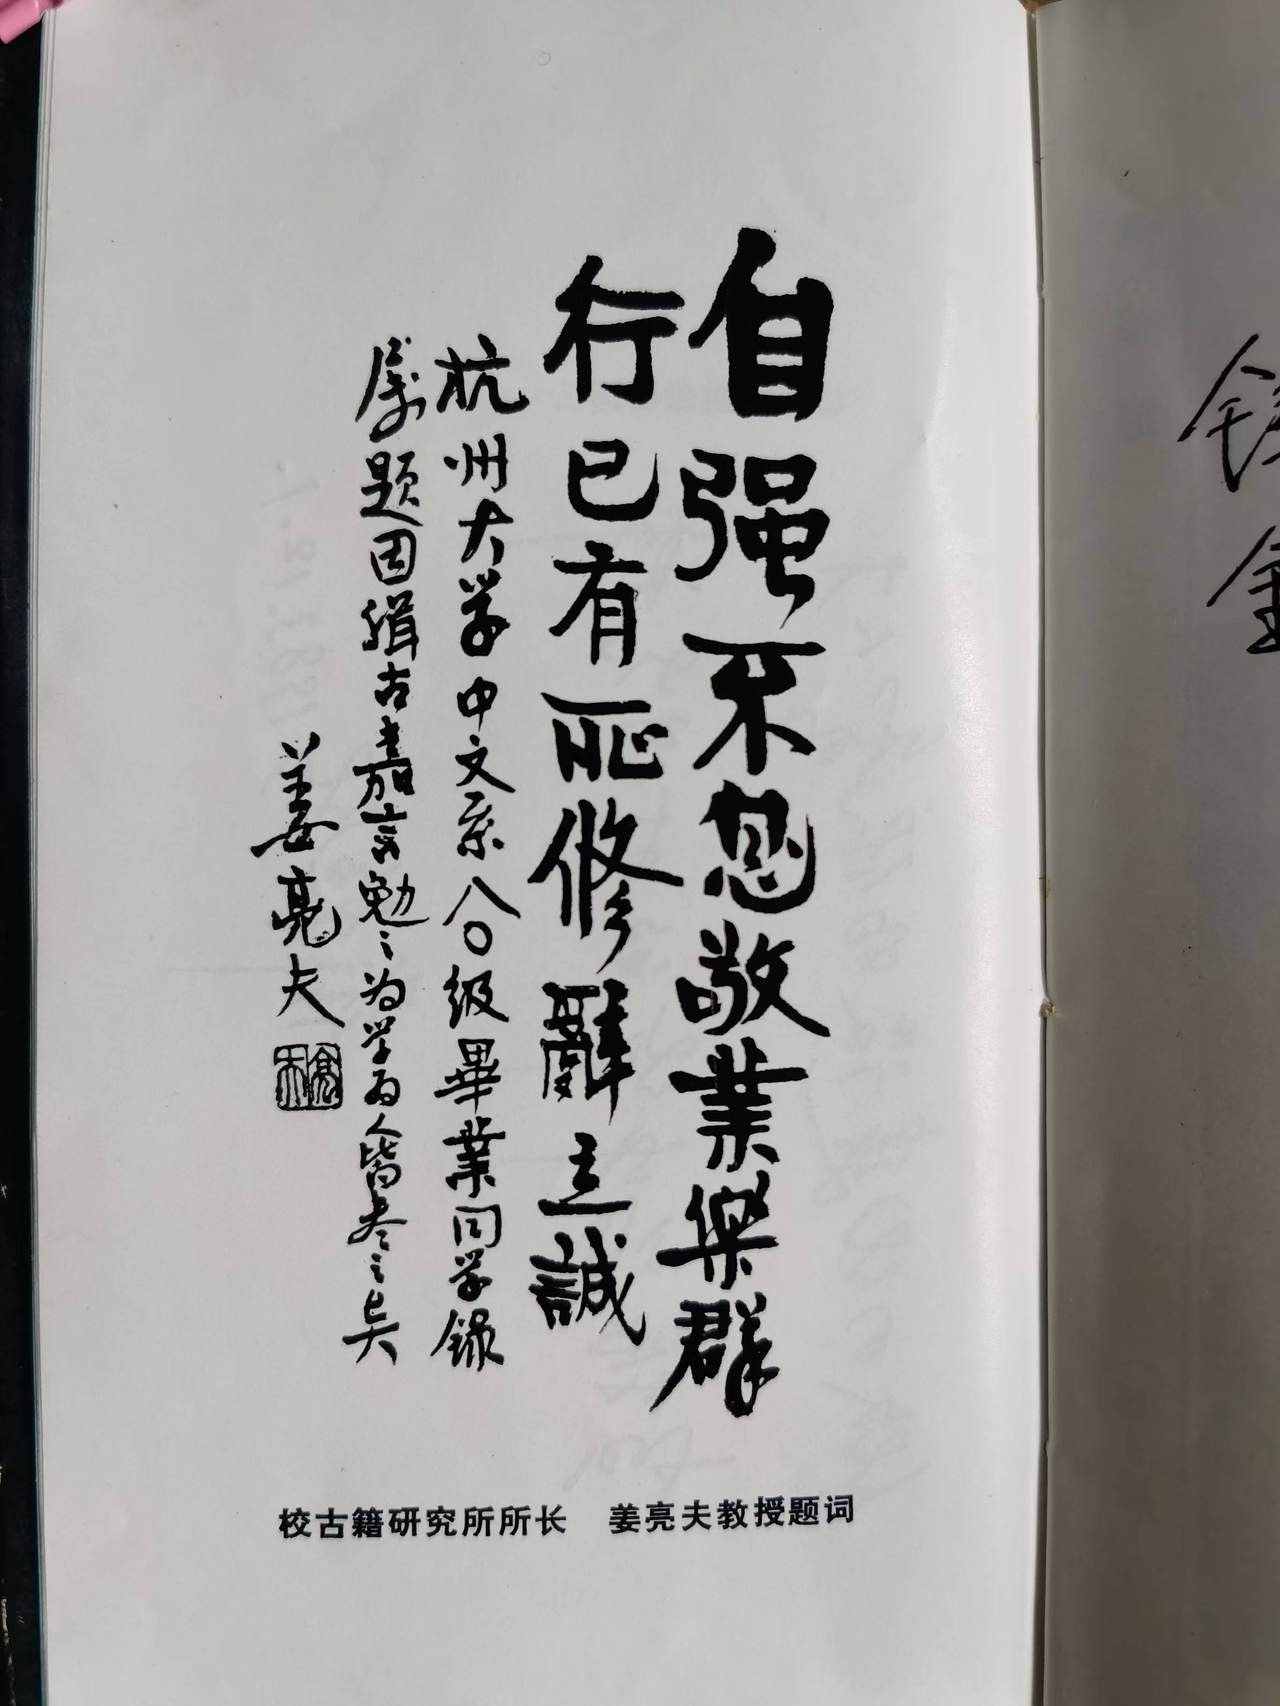 自强不息敬业樂群
行己有耻修辭立誠
杭州大学中文系八〇级畢業同学錄
属题因辑古嘉言勉之为学为人皆尽之矣
姜亮夫
亮夫
校古籍研究所所长 姜亮夫教授题词